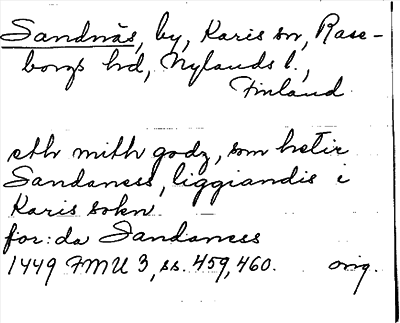 Sandnäs, by, Karis sn, Rase-
borgs hd, Nylands l.,
Finland
eth mith godz, som hetir
Sandaness, liggiandis i
Karis sokn
for: da Sandaness
1449 FMU 3, ss. 459, 460. orig.